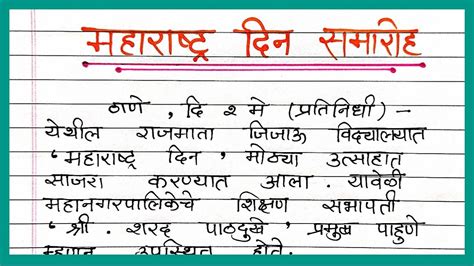 महाराष्ट्र दिन समारोह
ठाणे , दि २ मे (प्रतिनिधी) -
येथील राजमाता जिजाऊ विद्यालयात
' महाराष्ट्र दिन ' मोठ्या उत्साहात
साजरा करण्यात आला . यावेळी
महानगरपालिकेचे शिक्षण सभापती
' श्री . शरद पाठदुखे ' प्रमुख पाहुणे
म्हणून उपस्थित होते .